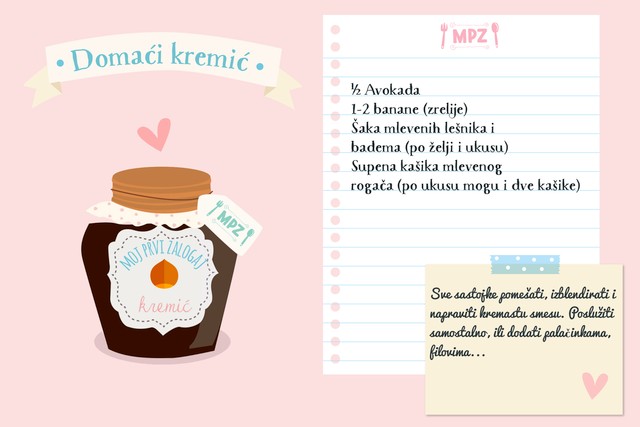 • Domaći kremić •
MPZ
½ Avokada
1-2 banane (zrelije)
Šaka mlevenih lešnika i
badema (po želji i ukusu)
Supena kašika mlevenog
rogača (po ukusu mogu i dve kašike)
MPZ
MOJ PRVI ZALOGAJ
kremić
Sve sastojke pomešati, izblendirati i
napraviti kremastu smesu. Poslužiti
samostalno, ili dodati palačinkama,
filovima...